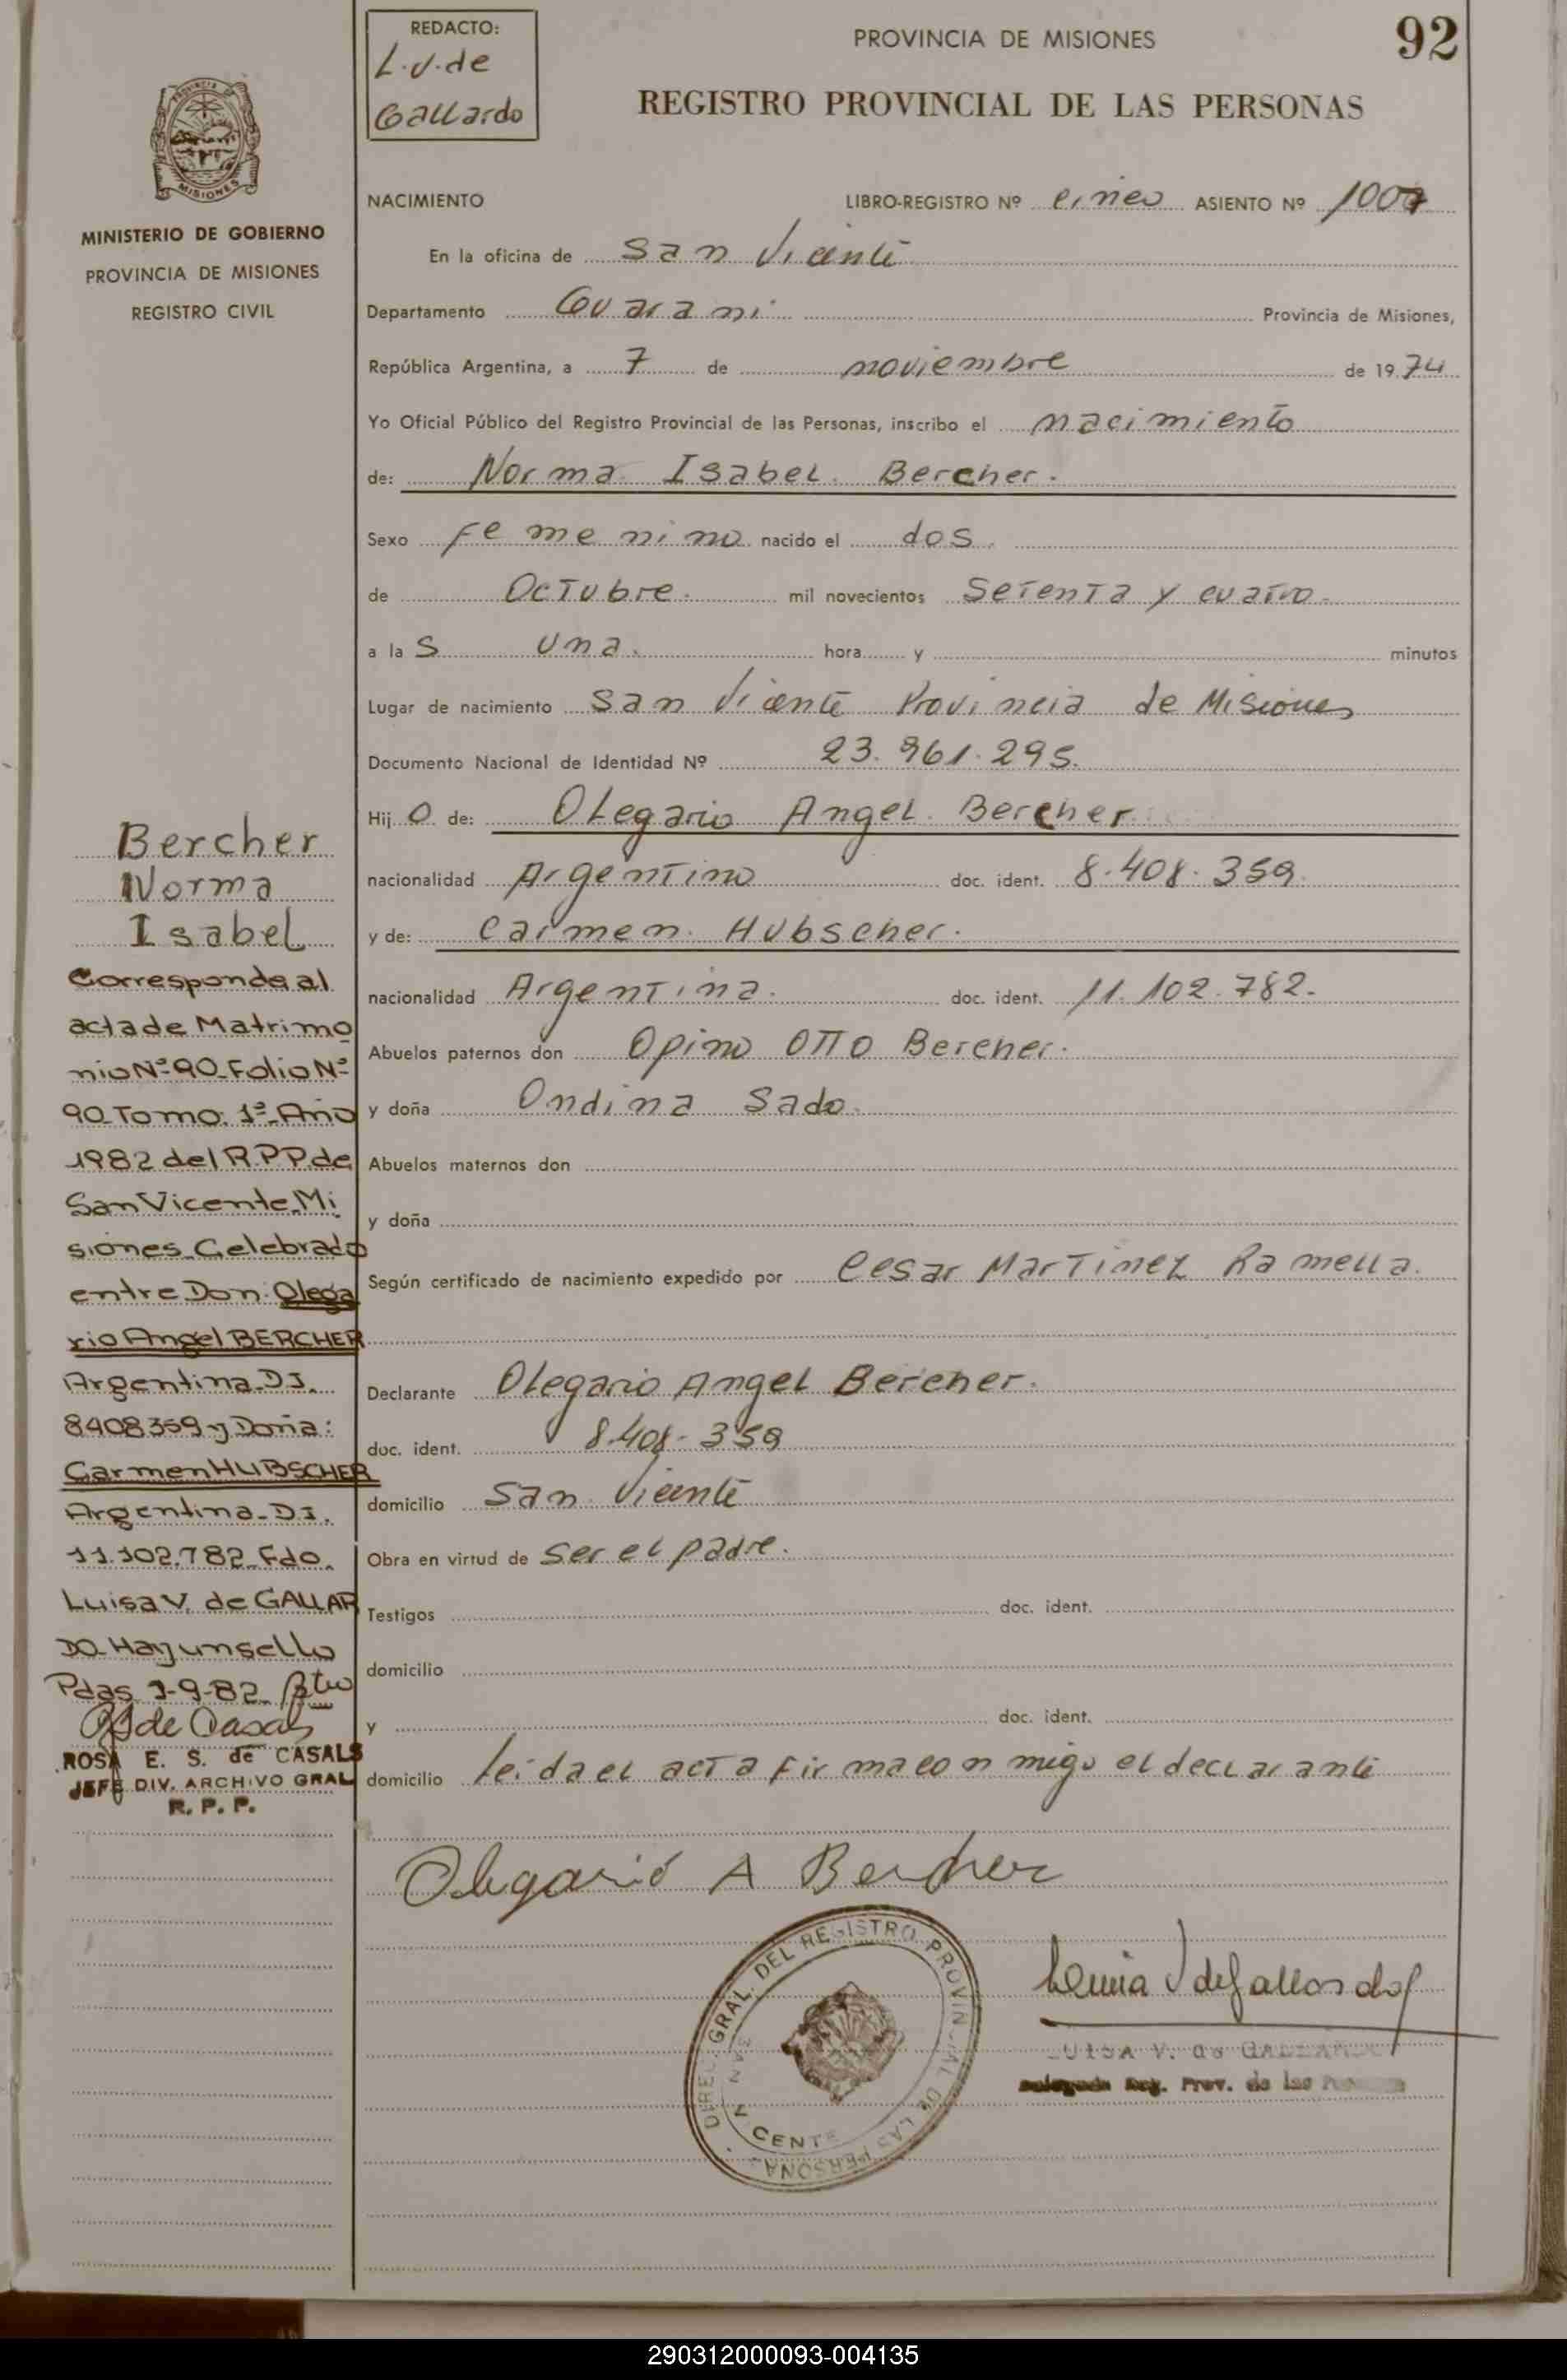 REDACTO:
L.V.de
Gallardo
PROVINCIA DE MISIONES
92
REGISTRO PROVINCIAL DE LAS PERSONAS
MISIONES
MINISTERIO DE GOBIERNO
PROVINCIA DE MISIONES
REGISTRO CIVIL
NACIMIENTO LIBRO-REGISTRO Nº cinco ASIENTO Nº
En la oficina de San Vicente
Departamento Guarani Provincia de Misiones,
República Argentina, a 7 de noviembre de 1974
Yo Oficial Público del Registro Provincial de las Personas, inscribo el nacimiento
de: Norma Isabel Bercher.
Sexo femenino nacido el dos.
de Octubre. mil novecientos Setenta y cuatro.
a la s una. hora y minutos
Lugar de nacimiento San Vicente Provincia de Misiones
Documento Nacional de Identidad Nº 23.961.295.
Hij o de: Olegario Angel Bercher
nacionalidad Argentino doc. ident. 8.408.359.
y de: Carmen Hubscher.
nacionalidad Argentina. doc. ident. 11.102.782.
Abuelos paternos don Opino Otto Bercher.
y doña Ondina Sado.
Abuelos maternos don
y doña
Según certificado de nacimiento expedido por Cesar Martinez Ramella.
Declarante Olegario Angel Bercher.
doc. ident. 8.408.359
domicilio San Vicente
Obra en virtud de Ser el padre.
Testigos doc. ident.
domicilio
y doc. ident.
domicilio leida el acta firma con migo el declarante
Olegario A Bercher
Bercher
Norma
Isabel
Corresponde al
acta de Matrimo
nio Nº 90 Folio Nº
90 Tomo: 1º Año
1982 del R.P.P. de
San Vicente Mi
siones Celebrado
entre Don: Olega
rio Angel BERCHER
Argentina D.I.
8408359 y Doña:
Carmen HUBSCHER
Argentina D.I.
11.102.782 Fdo.
Luisa V. de GALLAR
DO Hay un sello
Pdas 3-9-82
de Casals
ROSA E. S. de CASALS
JEFE DIV. ARCHIVO GRAL
R. P. P.
DIREC. GRAL. DEL REGISTRO PROVINCIAL DE LAS PERSONAS
SAN VICENTE
Luisa V de Gallardo
LUISA V. de GALLARDO
Delegada Reg. Prov. de las Personas
290312000093-004135